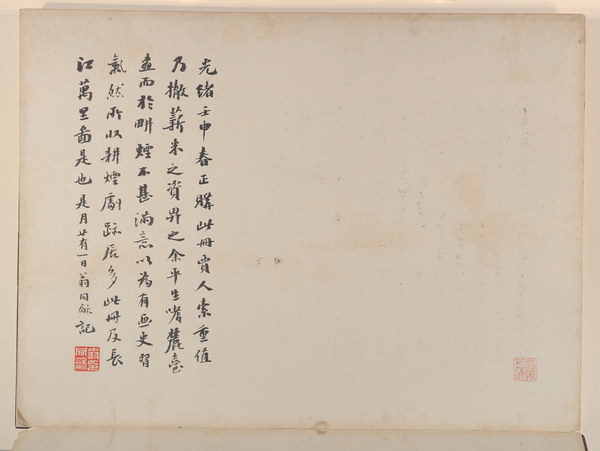 光緒壬申春正購此冊賈人索重值
乃撤薪米之資畀之余平生嗜麓臺
畫而於畊煙不甚滿意以為有畫史習
氣然所收耕煙劇跡居多此冊及長
江萬里啚是也是月廿有一日翁同龢記